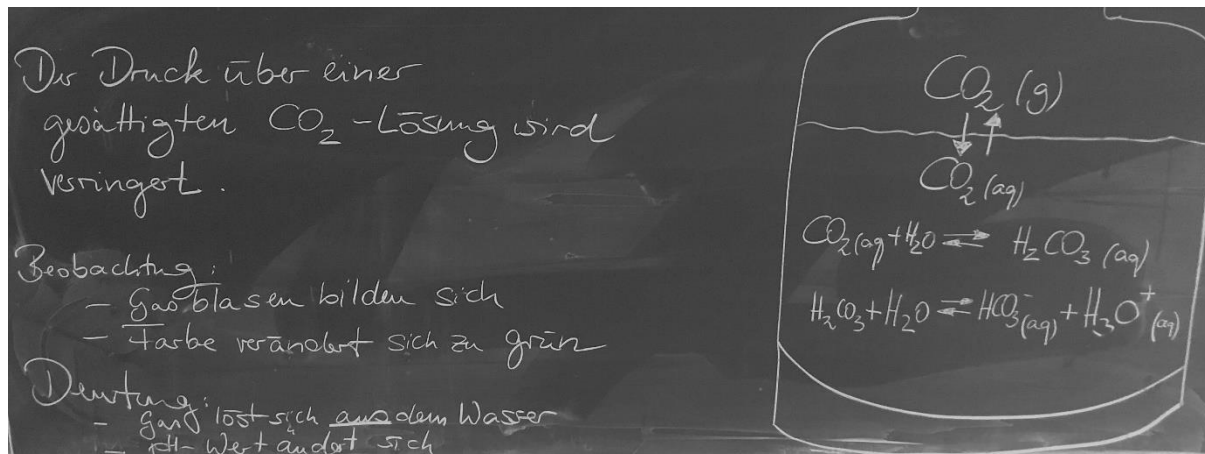 Der Druck über einer
gesättigten CO₂-Lösung wird
verringert.
Beobachtung:
- Gasblasen bilden sich
- Farbe verändert sich zu grün
Deutung:
- Gas löst sich aus dem Wasser
- pH-Wert ändert sich
CO₂ (g)
CO₂ (aq)
CO₂(aq) + H₂O ⇌ H₂CO₃ (aq)
H₂CO₃ + H₂O ⇌ HCO₃⁻(aq) + H₃O⁺(aq)